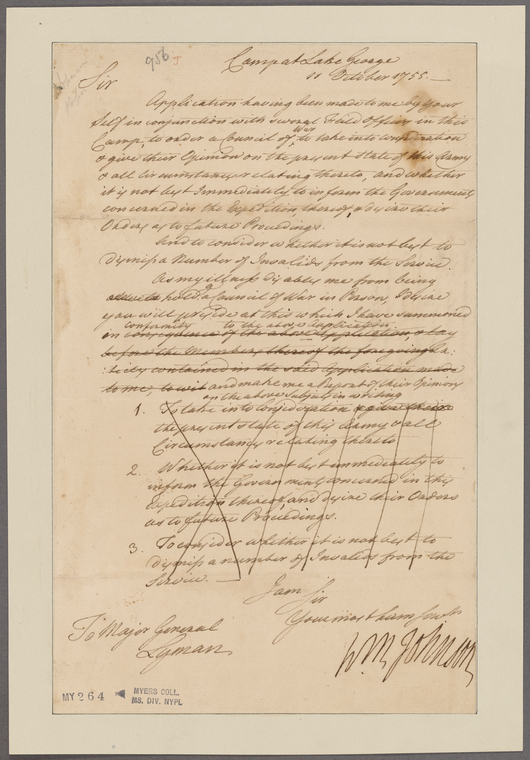 956
Camp at Lake George
11 October 1755. —
Sir
Application having been made to me by your
Self in conjunction with several Field Officers in this
Camp, to order a Council of War to take into consideration
& give their Opinions on the present State of this Army
& all Circumstances relating thereto, and whether
it is not best Immediately to inform the Governments
concerned in the Expedition thereof, & desire their
Orders as to future Proceedings.
And to consider whether it is not best to
dismiss a Number of Invalids from the Service.
As my illness disables me from being
hold a Council of War in Person, I desire
you will preside at this which I have summoned
conformity to the above Application
in consequence of the above Application, & lay
before the Members thereof the foregoing
contained in the said Application made
to me, to wit and make me a Report of their Opinions
on the above Subjects in writing
1. To take into Consideration & give their
the present State of this Army & all
Circumstances relating thereto
2. Whether it is not best immediately to
inform the Governments concerned in this
Expedition thereof and desire their Orders
as to future Proceedings.
3. To consider whether it is not best to
dismiss a number of Invalids from the
Service. —
I am Sir
Your most hum
Wm Johnson
To Major General
Lyman
MY 264
MYERS COLL.
MS. DIV. NYPL